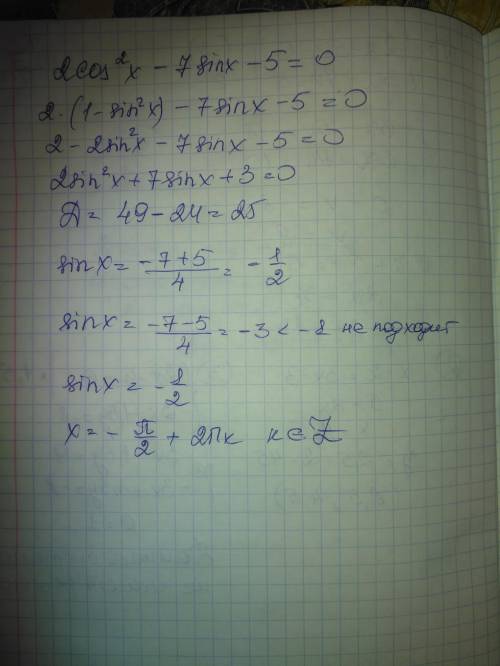 2cos²x - 7sinx - 5 = 0
2·(1-sin²x) - 7sinx - 5 = 0
2 - 2sin²x - 7sinx - 5 = 0
2sin²x + 7sinx + 3 = 0
Д = 49 - 24 = 25
sinx = (-7+5)/4 = -1/2
sinx = (-7-5)/4 = -3 < -1 не подходит
sinx = -1/2
x = -π/2 + 2πk k∈Z